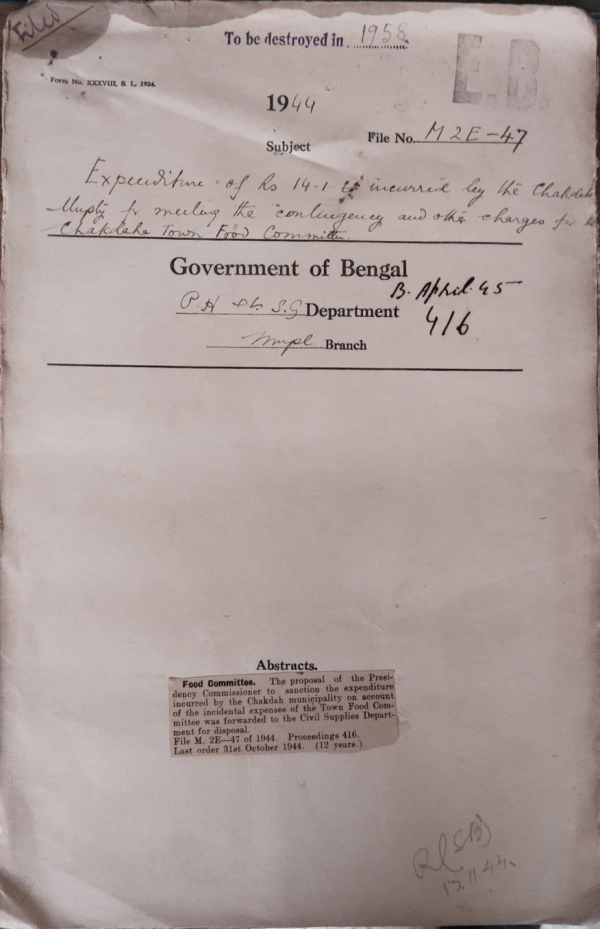 Filed
To be destroyed in 1958
E.B.
Form No. XXXVIII, S. I., 1924.
1944
Subject
File No. M2E-47
Expenditure of Rs 14-1 incurred by the Chakdah
Mupty for meeting the contingency and other charges for
Chakdaha Town Food Committee.
Government of Bengal
B. April 45
P.H & L.S.G Department
416
Mupl. Branch
Abstracts.
Food Committee. The proposal of the Presi-
dency Commissioner to sanction the expenditure
incurred by the Chakdah municipality on account
of the incidental expenses of the Town Food Com-
mittee was forwarded to the Civil Supplies Depart-
ment for disposal.
File M. 2E—47 of 1944. Proceedings 416.
Last order 31st October 1944. (12 years.)
13.11.44.